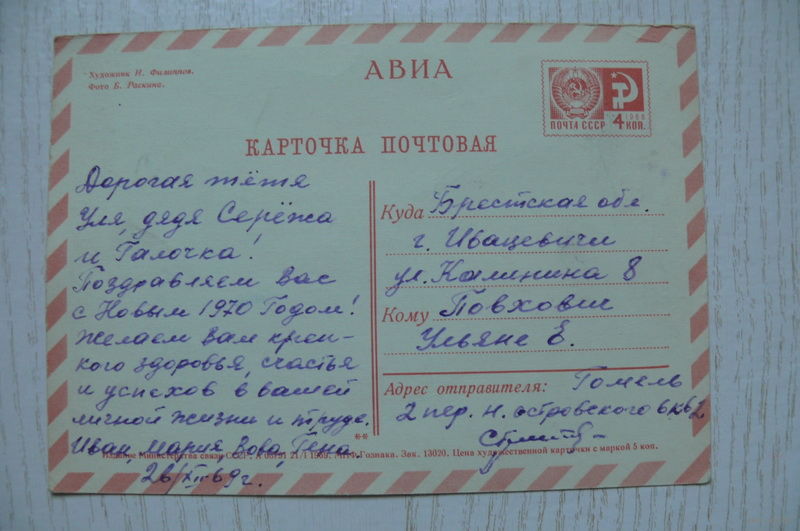 Художник Н. Филиппов.
Фото Б. Раскина.
АВИА
1966
ПОЧТА СССР 4 КОП.
КАРТОЧКА ПОЧТОВАЯ
Дорогая тётя
Уля, дядя Серёжа
и Галочка!
Поздравляем Вас
с Новым 1970 Годом!
Желаем Вам креп-
кого здоровья, счастья
и успехов в вашей
личной жизни и труде.
Иван, Мария, Вова, Гена.
26/XII 69 г.
Куда Брестская обл.
г. Ивацевичи
ул. Калинина 8
Кому Повхович
Ульяне Е.
Адрес отправителя: Гомель
2 пер. Н. островского 6 кв 2
Издание Министерства связи СССР. 21/I 1969. МПФ Гознака. Зак. 13020. Цена художественной карточки с маркой 5 коп.